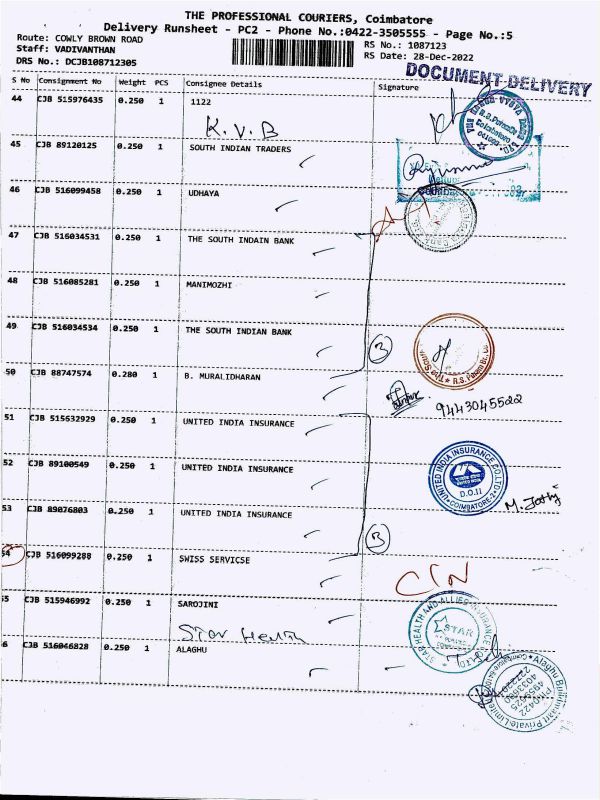 THE PROFESSIONAL COURIERS, Coimbatore
Delivery Runsheet - PC2 - Phone No.:0422-3505555 - Page No.:5
Route: COWLY BROWN ROAD
RS No.: 1087123
Staff: VADIVANTHAN
RS Date: 28-Dec-2022
DRS No.: DCJB108712305
DOCUMENT DELIVERY
S No Consignment No Weight PCS Consignee Details Signature
44 CJB 515976435 0.250 1 1122
K.V.B
45 CJB 89120125 0.250 1 SOUTH INDIAN TRADERS
46 CJB 516099458 0.250 1 UDHAYA
47 CJB 516034531 0.250 1 THE SOUTH INDAIN BANK
48 CJB 516085281 0.250 1 MANIMOZHI
49 CJB 516034534 0.250 1 THE SOUTH INDIAN BANK
3
50 CJB 88747574 0.280 1 B. MURALIDHARAN
9443045522
51 CJB 515632929 0.250 1 UNITED INDIA INSURANCE
52 CJB 89100549 0.250 1 UNITED INDIA INSURANCE
UNITED INDIA INSURANCE CO.LTD
D.O.II
COIMBATORE-2
M. Jothy
53 CJB 89076803 0.250 1 UNITED INDIA INSURANCE
3
54 CJB 516099288 0.250 1 SWISS SERVICSE
CIN
55 CJB 515946992 0.250 1 SAROJINI
STAR HEALTH AND ALLIED INSURANCE
STAR
Star Health
6 CJB 516046828 0.250 1 ALAGHU
Alaghu Buildmart Private Limited